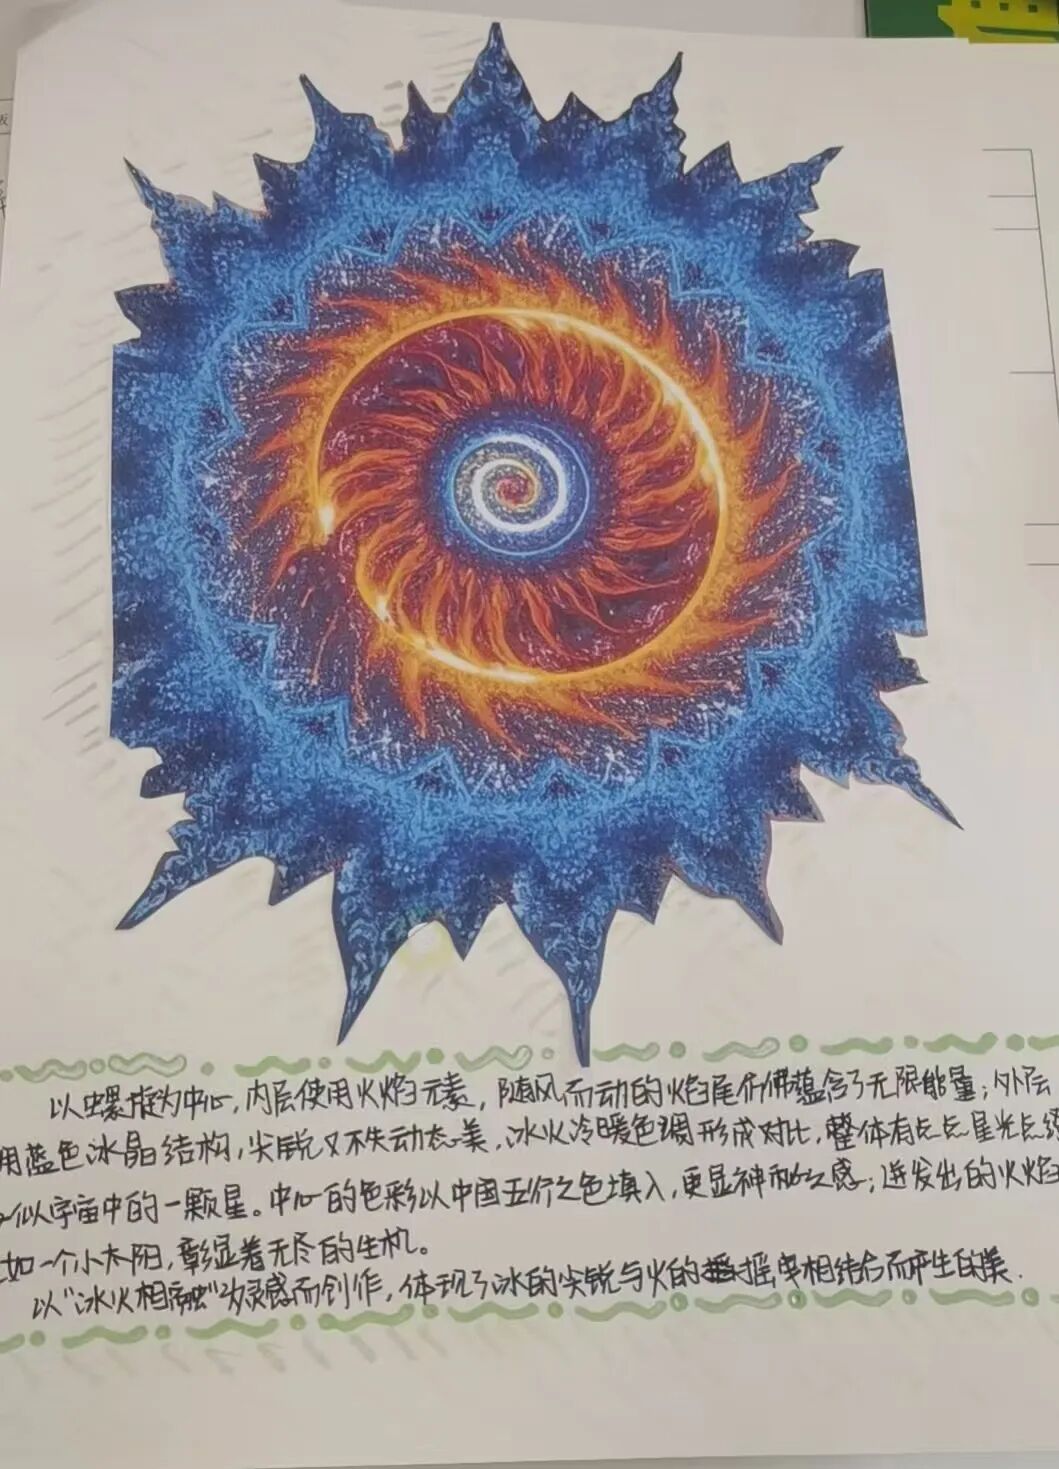 以螺旋为中心，内层使用火焰元素，随风而动的焰尾仿佛蕴含了无限能量；外层
用蓝色冰晶结构，尖锐又不失动态美，冰火冷暖色调形成对比，整体有点点星光点缀
似宇宙中的一颗星。中心的色彩以中国五行之色填入，更显神秘之感；迸发出的火焰
如一个小太阳，彰显着无尽的生机。
以"冰火相融"为灵感而创作，体现了冰的尖锐与火的摇曳相结合而产生的美.